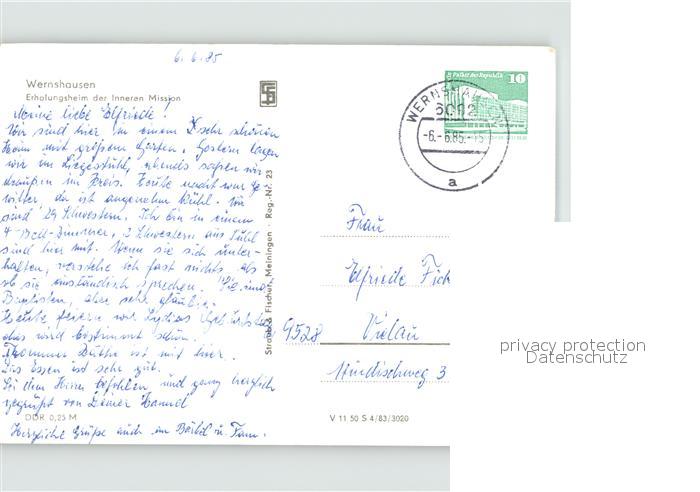 6.6.85
Wernshausen
Erholungsheim der Inneren Mission
Meine liebe Elfriede!
Wir sind hier in einem sehr schönen
Heim mit großem Garten. Gestern lagen
wir im Liegestuhl, abends saßen wir
draußen im Kreis. Heute nacht war Ge-
witter, da ist angenehm kühl. Wir
sind 29 Schwestern. Ich bin in einem
4-Bett-Zimmer, 3 Schwestern aus Suhl
sind hier mit. Wenn sie sich unter-
halten, verstehe ich fast nichts, als
ob sie ausländisch sprechen. Sie sind
Baptisten, aber sehr gläubig.
Heute feiern wir Lydias Geburtstag
das wird bestimmt schön.
ist mit hier.
Das Essen ist sehr gut.
Sei dem Herrn befohlen und ganz herzlich
gegrüßt von Deiner Hannel
DDR 0,25 M
Herzliche Grüße auch an Bärbel u. Fam.
Straub & Fischer, Meiningen · Reg.-Nr. 23
Palast der Republik 10
WERNSHAU
6092
-6.-6.85.-15
a
Frau
Elfriede Fich
9528 Vielau
Windischweg 3
V 11 50 S 4/83/3020
privacy protection
Datenschutz